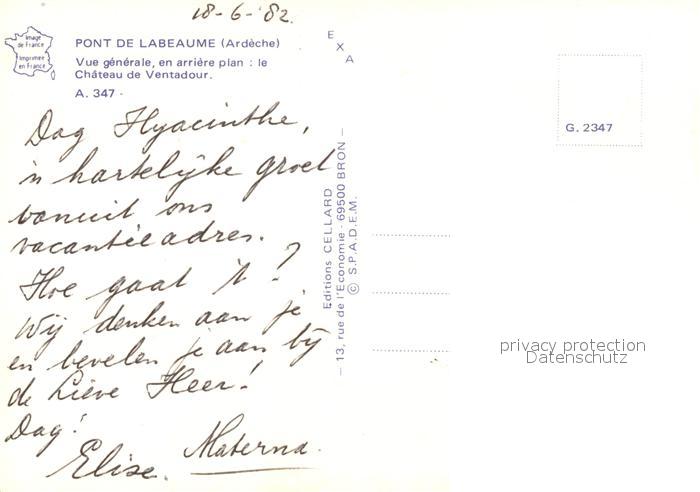 18-6-'82
Image
de France
Imprimée
en France
PONT DE LABEAUME (Ardèche)
Vue générale, en arrière plan : le
Château de Ventadour.
A. 347 -
Dag Hyacinthe,
'n hartelijke groet
vanuit ons
vacantieadres.
Hoe gaat 't?
Wij denken aan je
en bevelen je aan bij
de Lieve Heer!
Dag!
Elise. Materna.
EXA
Editions CELLARD
— 13, rue de l'Economie - 69500 BRON —
© S.P.A.D.E.M.
G. 2347
privacy protection
Datenschutz